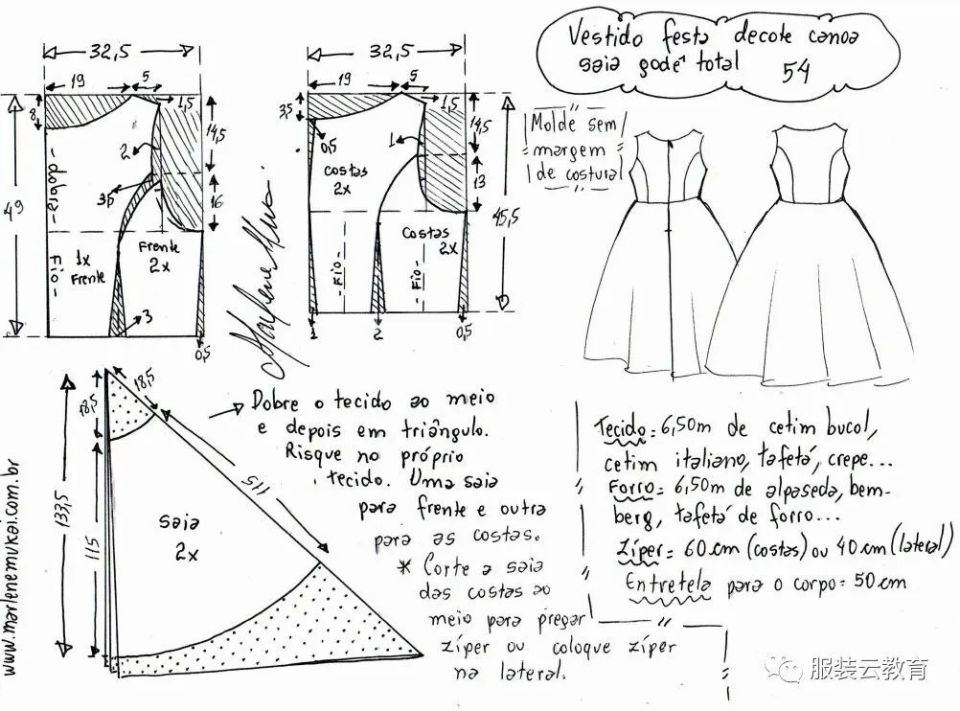 Vestido festa decote canoa
saia godê total 54
Molde sem
margem
de costura
32,5
19
5
1,5
8
14,5
2
3,5
16
49
dobra
Fio
1x
Frente
Frente
2x
3
0,5
32,5
19
5
1,5
3,5
0,5
14,5
1
13
costas
2x
45,5
Costas
2x
Fio
Fio
1
2
0,5
Marlene Mukai
18,5
18,5
133,5
115
115
saia
2x
www.marlenemukai.com.br
Dobre o tecido ao meio
e depois em triângulo.
Risque no próprio
tecido. Uma saia
para frente e outra
para as costas.
* Corte a saia
das costas ao
meio para pregar
zíper ou coloque zíper
na lateral.
Tecido = 6,50m de cetim bucol,
cetim italiano, tafetá, crepe...
Forro = 6,50m de alpaseda, bem-
berg, tafetá de forro...
Zíper = 60 cm (costas) ou 40 cm (lateral)
Entretela para o corpo = 50 cm
服装云教育